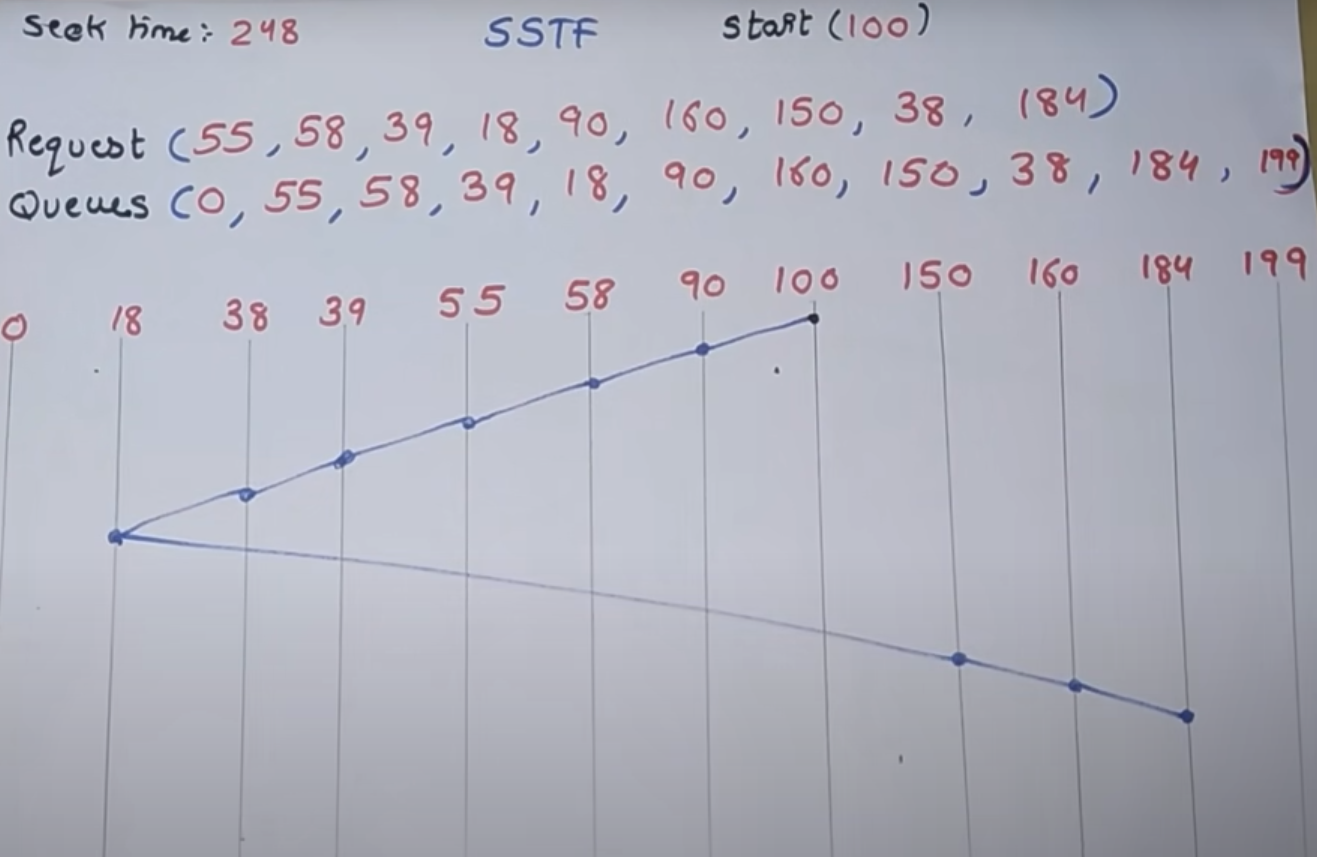 Seek time: 248 SSTF Start (100)
Request (55, 58, 39, 18, 90, 160, 150, 38, 184)
Queues (0, 55, 58, 39, 18, 90, 160, 150, 38, 184, 199)
0 18 38 39 55 58 90 100 150 160 184 199